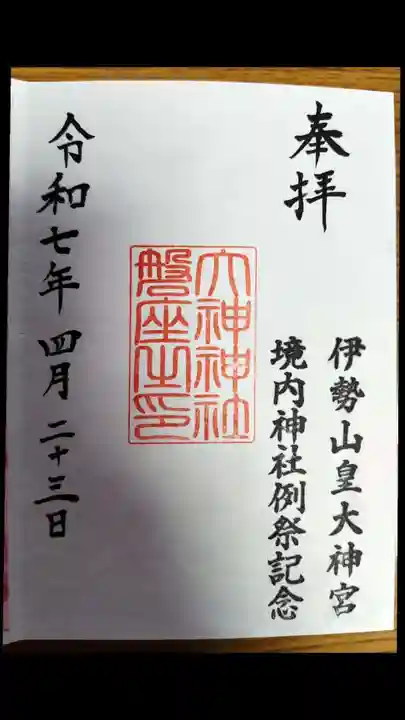 奉拝
伊勢山皇大神宮
境内神社例祭記念
大神神社
磐座之印
令和七年 四月 二十三日